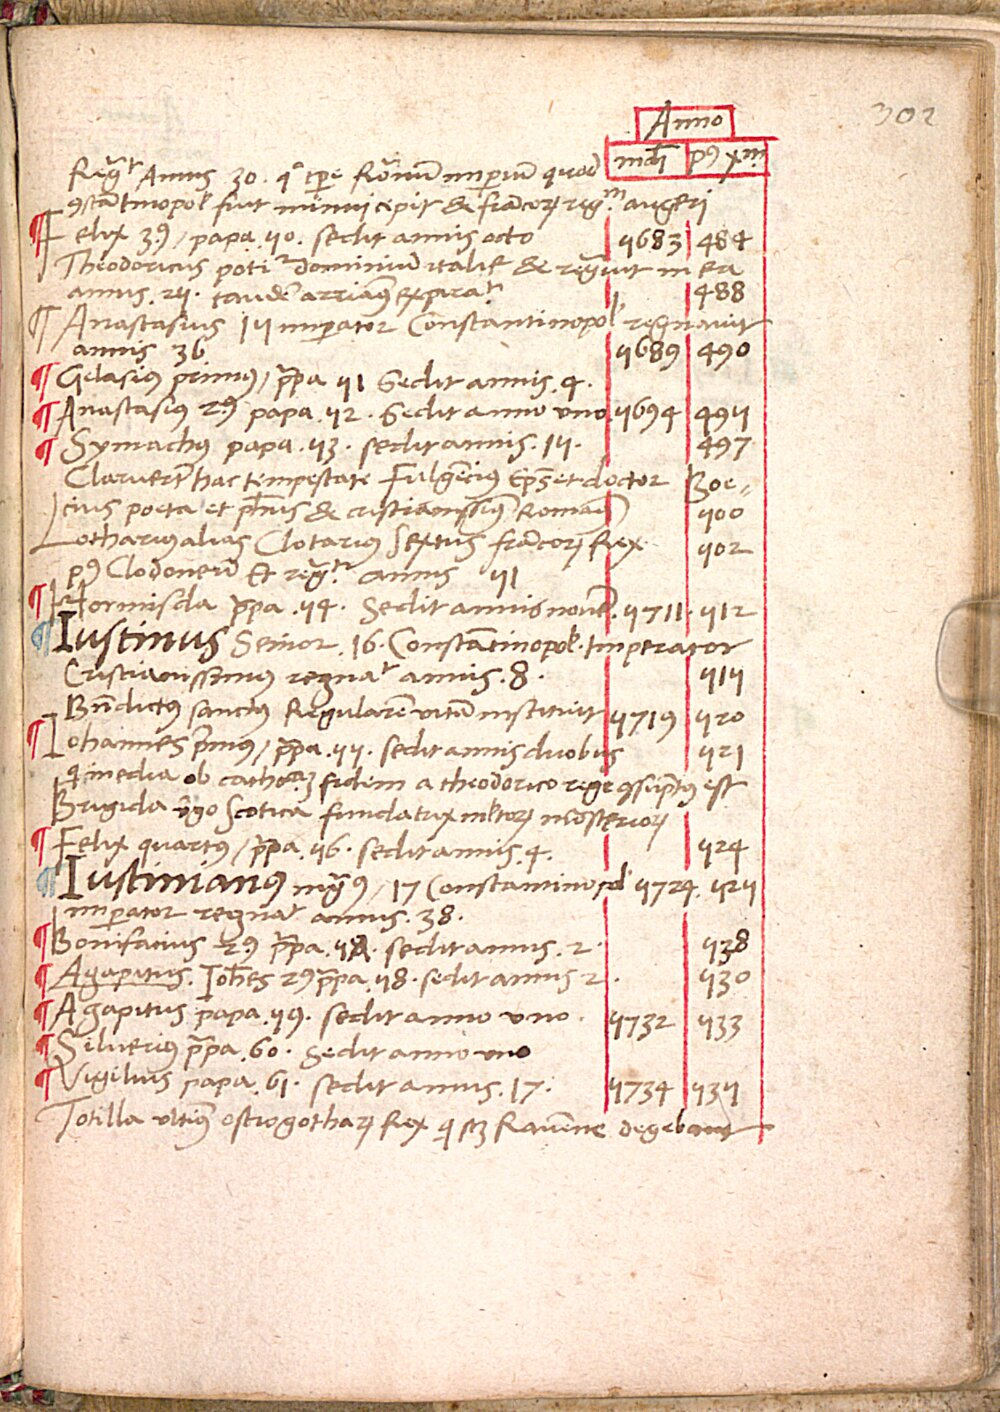 302
Anno
mdi p9 xm
Regr Annis 30. qo tpre Romū imperium quod
9stātinopol fuit minui cepit & francorꝫ regm augeri
¶ Felix 39 / papa 50. sedit annis octo 5683 484
Theodoricus potir dominiū italie & regūit in ea
annis. 25. tandē arrian9 expirat 488
¶ Anastasius 15 imperator Constantinopol regnavit
annis 36 5689 490
¶ Gelasi9 primus / ppa 51 Sedit annis. 4.
¶ Anastasi9 29 papa. 52. Sedit anno uno 5694 495
¶ Symach9 papa. 53. sedit annis. 15. 497
Claruert hac tempestate Fulgēci9 Eps et doctor Boe-
cius poeta et phus & cristianissi9 Roman9 500
Lothari9 alias Clotari9 sextus francorꝫ Rex 502
p9 Clodoneū Et regt annis 51
¶ Hormisda ppa. 54. Sedit annis novē. 5711. 512
¶ Iustinus Senior. 16. Constātinopol. Imperator
Cristianissimus regnat annis. 8. 515
Bndict9 sanctus Regularē vitā instituit 5719 520
¶ Iohannes prim9 / ppa. 55. sedit annis duobus 521
q inedia ob cathocā fidem a theodorico rege 9supt9 est
Brigida vgo Scotica fundatrix mltorꝫ mōsteriorꝫ
¶ Felix quartus / ppa. 56. sedit annis. 4. 524
¶ Iustinian9 mg9 / 17 Constantinopol 5724. 525
imperator regnat annis. 38.
¶ Bonifatius 29 ppa. 57. sedit annis. 2. 538
¶ Agapitus. Iohes 29 ppa. 58. sedit annis 2. 530
¶ Agapitus papa. 59. sedit anno uno. 5732 533
¶ Silveri9 ppa. 60. Sedit anno uno
¶ Vigilius papa. 61. sedit annis. 17. 5734 535
Totilla ultim9 ostrogotharꝫ Rex q Ravenne degebant